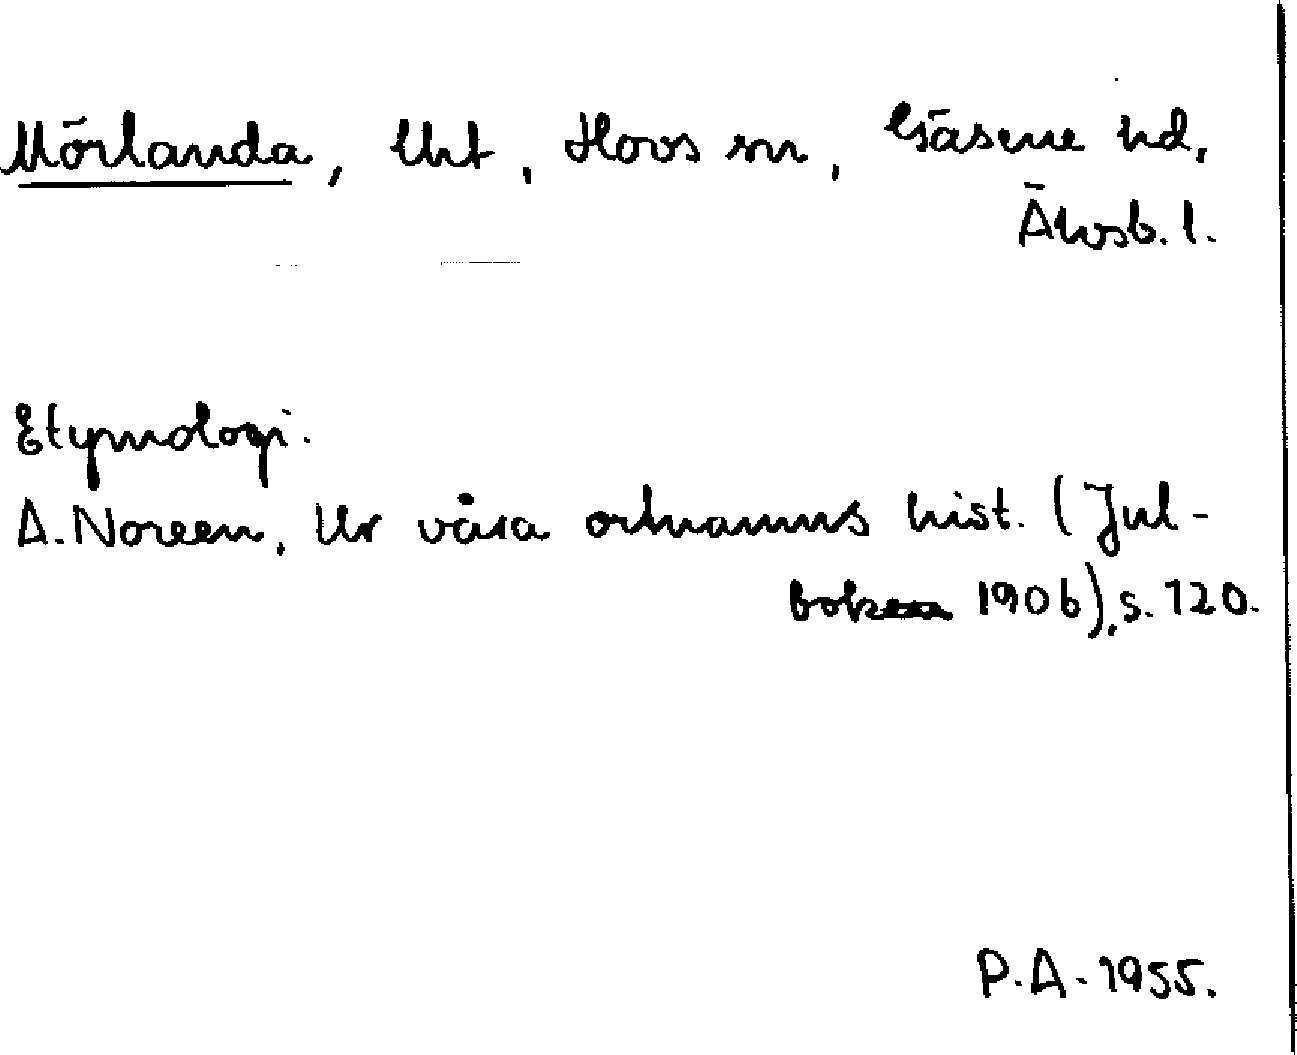 Mörlanda, Uht, Hovs sn, Gäsene hd,
Älvsb. l.
Etymologi.
A. Noreen, Ur våra ortnamns hist. (Jul-
boken 1906), s. 120.
P.A. 1955.